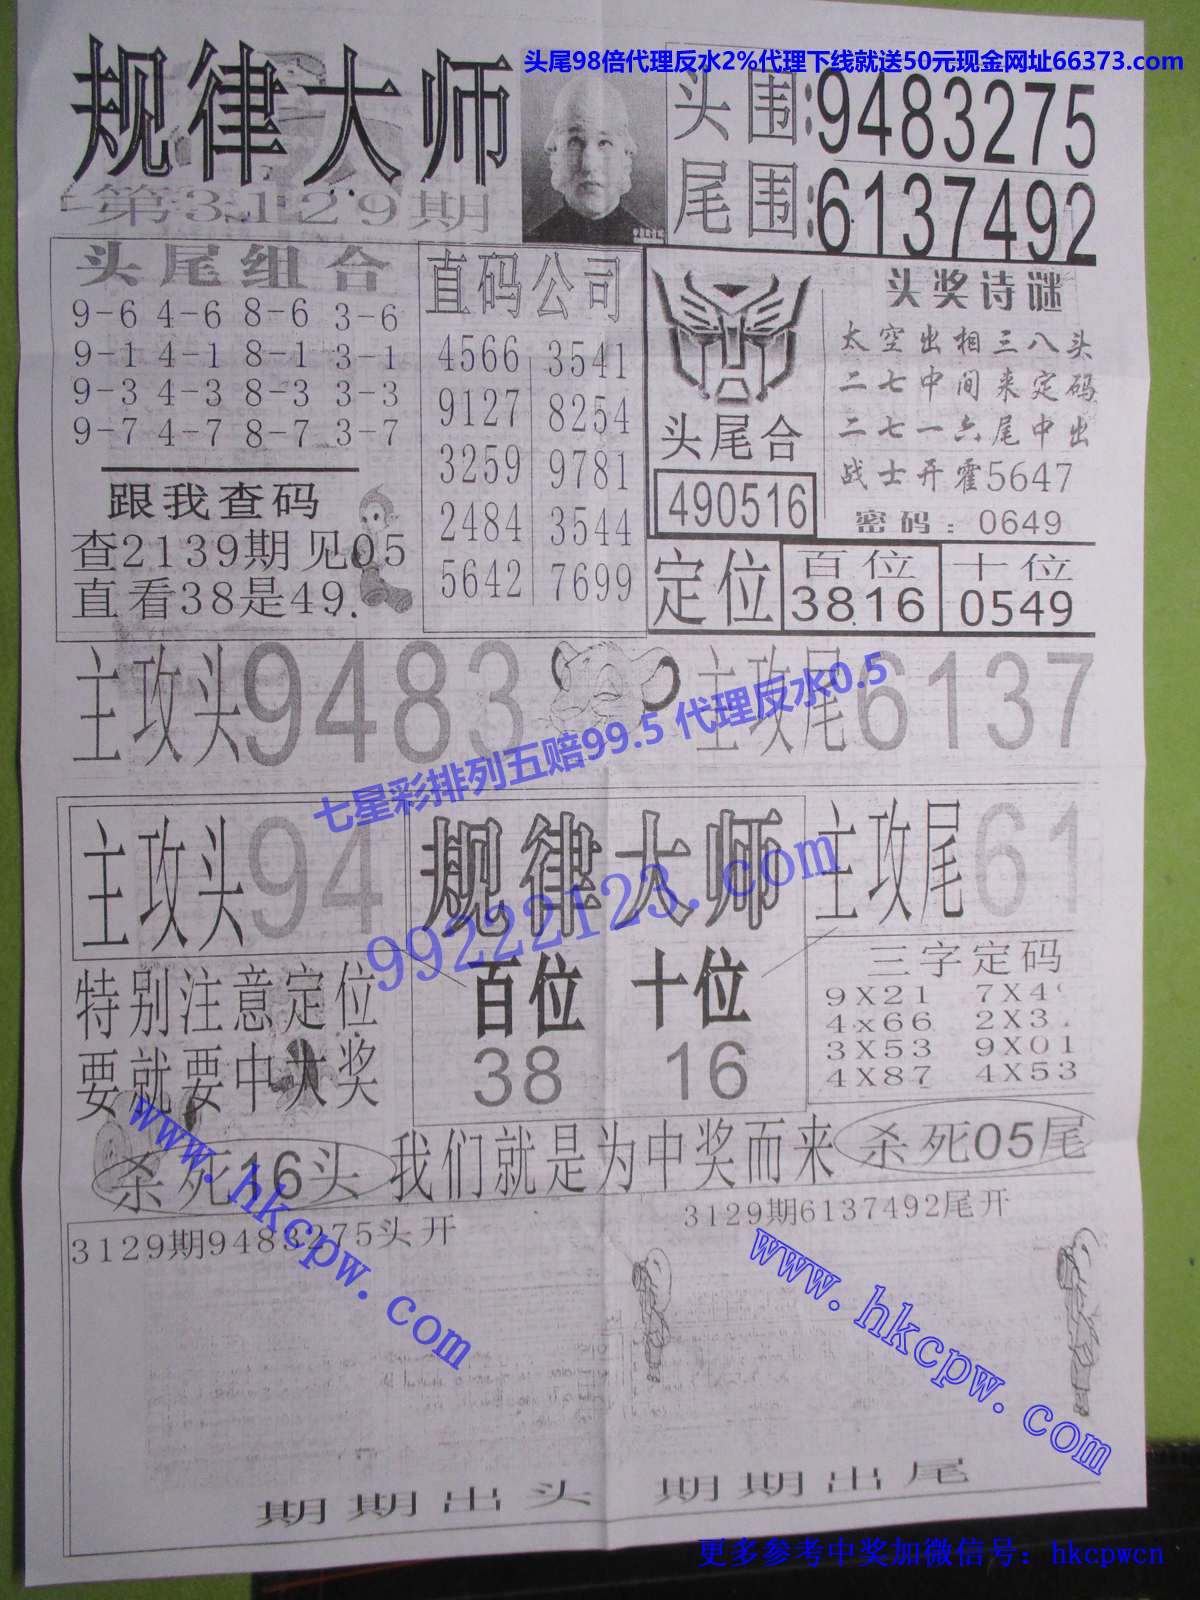 头尾98倍代理反水2%代理下线就送50元现金网址66373.com
规律大师
第3129期
头围:9483275
尾围:6137492
头尾组合
9-6 4-6 8-6 3-6
9-1 4-1 8-1 3-1
9-3 4-3 8-3 3-3
9-7 4-7 8-7 3-7
跟我查码
查2139期见05
直看38是49.
直码公司
4566 3541
9127 8254
3259 9781
2484 3544
5642 7699
头尾合
490516
头奖诗谜
太空出相三八头
二七中间来定码
二七一六尾中出
战士开霍5647
密码:0649
定位
百位
3816
十位
0549
主攻头9483
主攻尾6137
七星彩排列五赔99.5 代理反水0.5
主攻头94
规律大师
主攻尾61
99222123.com
特别注意定位
要就要中大奖
百位 十位
38 16
三字定码
9X21 7X4
4x66 2X3
3X53 9X01
4X87 4X53
www.hkcpw.com
杀死16头
我们就是为中奖而来
杀死05尾
3129期9483275头开
3129期6137492尾开
www.hkcpw.com
期期出头
期期出尾
更多参考中奖加微信号：hkcpwcn